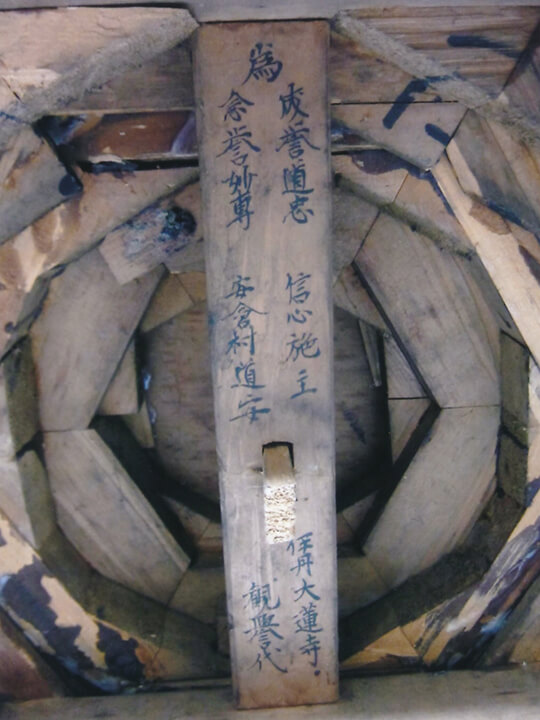 為
成誉道忠 信心施主
念誉妙専 安倉村道安
伊丹大蓮寺
観誉代